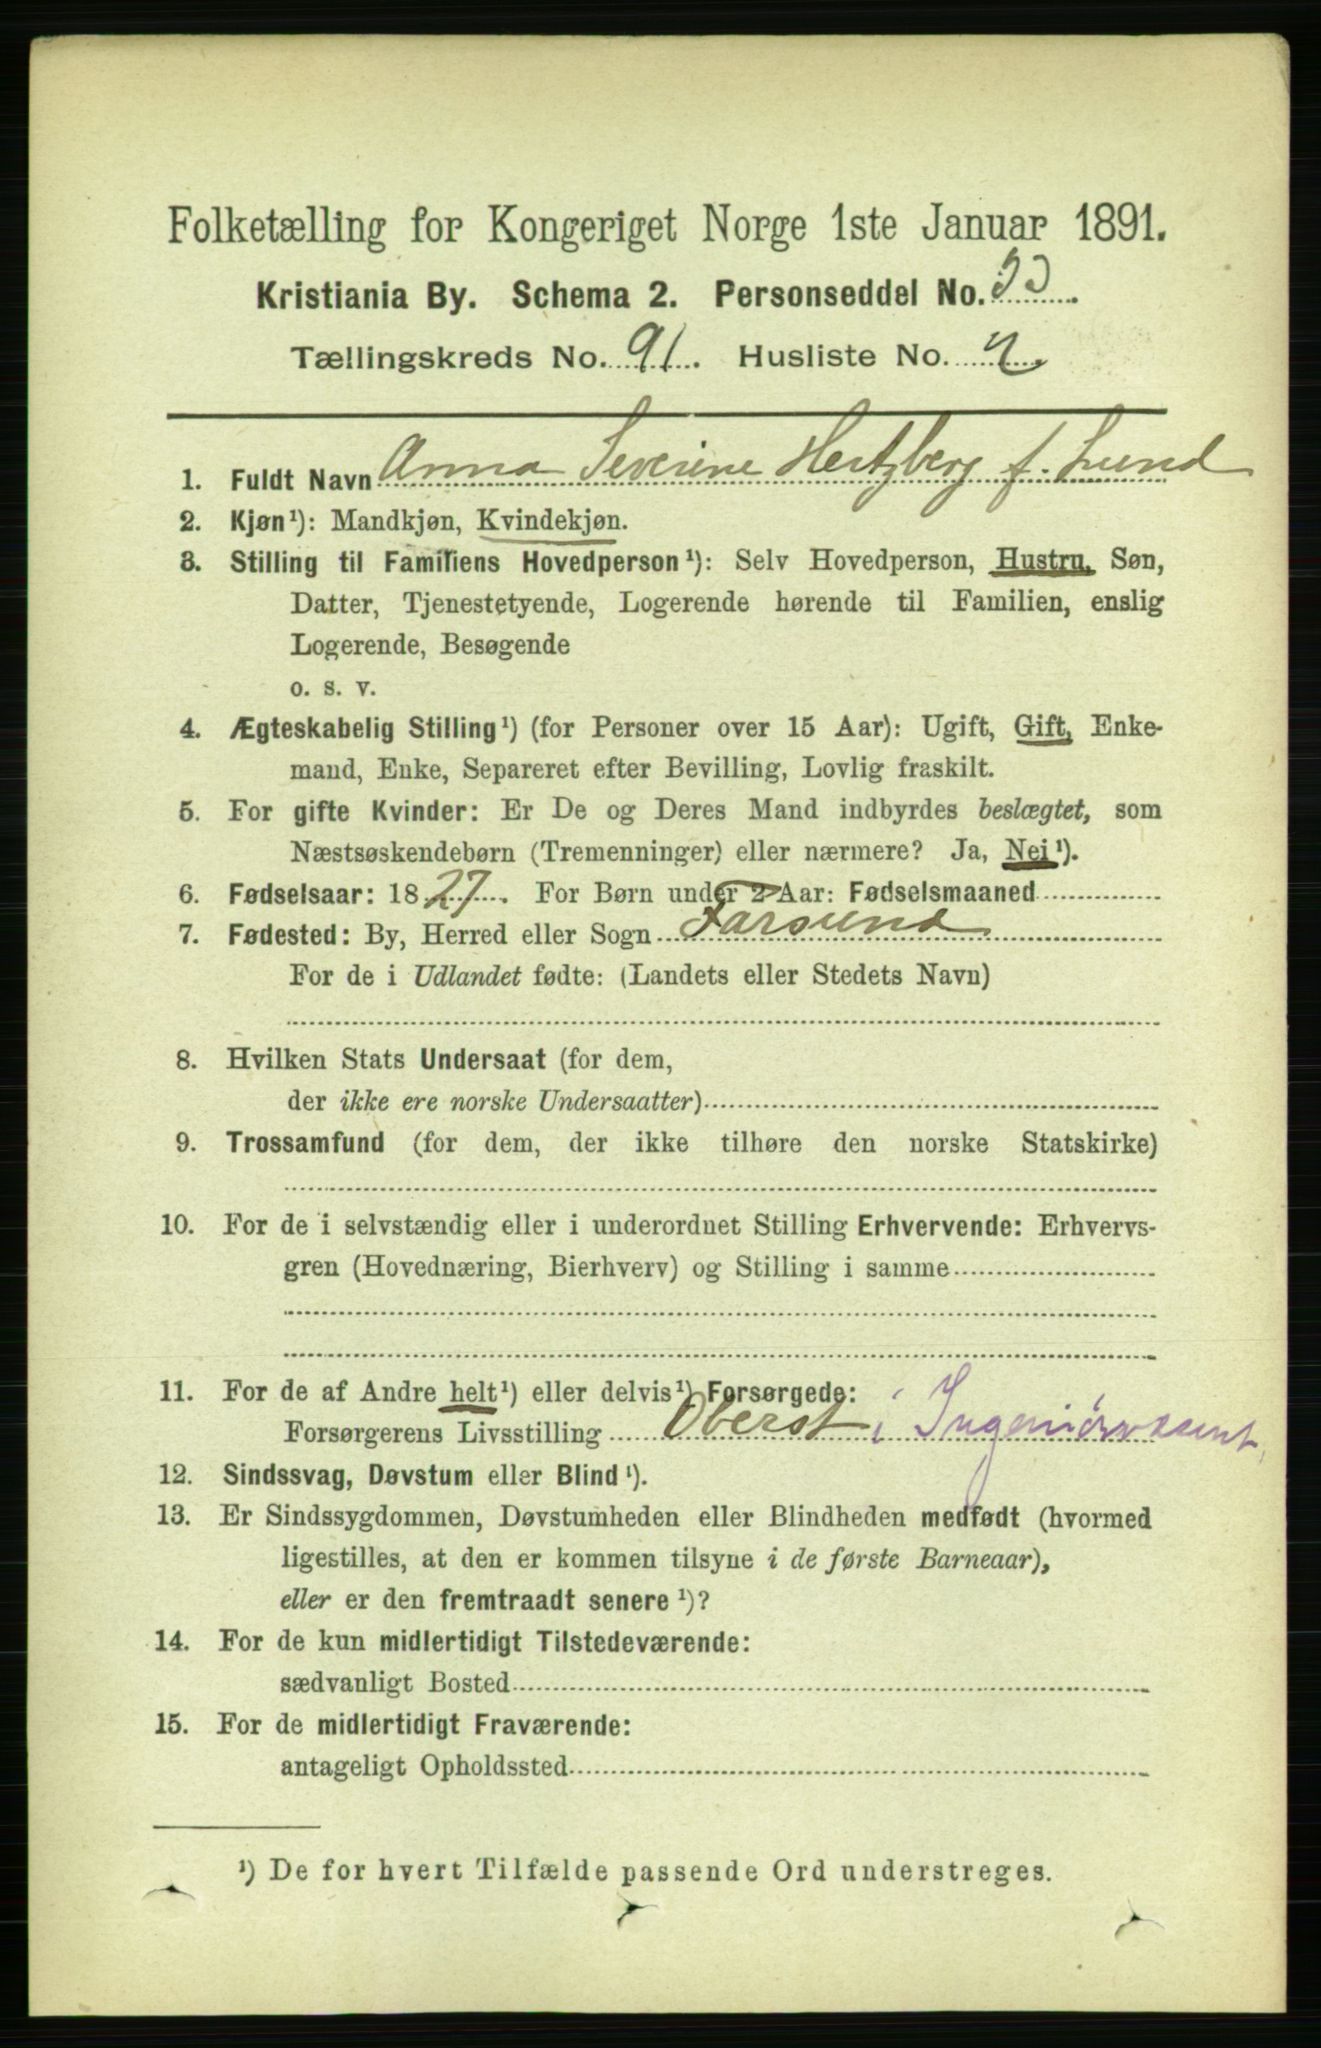 Folketælling for Kongeriget Norge 1ste Januar 1891.
Kristiania By. Schema 2. Personseddel No. 33.
Tællingskreds No. 91. Husliste No.
1. Fuldt Navn Anna Severine Hertzberg f. Lund
2. Kjøn¹): Mandkjøn, Kvindekjøn.
3. Stilling til Familiens Hovedperson¹): Selv Hovedperson, Hustru, Søn,
Datter, Tjenestetyende, Logerende hørende til Familien, enslig
Logerende, Besøgende
o. s. v.
4. Ægteskabelig Stilling¹) (for Personer over 15 Aar): Ugift, Gift, Enke-
mand, Enke, Separeret efter Bevilling, Lovlig fraskilt.
5. For gifte Kvinder: Er De og Deres Mand indbyrdes beslægtet, som
Næstsøskendebørn (Tremenninger) eller nærmere? Ja, Nei¹).
6. Fødselsaar: 1827. For Børn under 2 Aar: Fødselsmaaned
7. Fødested: By, Herred eller Sogn Farsund
For de i Udlandet fødte: (Landets eller Stedets Navn)
8. Hvilken Stats Undersaat (for dem,
der ikke ere norske Undersaatter)
9. Trossamfund (for dem, der ikke tilhøre den norske Statskirke)
10. For de i selvstændig eller i underordnet Stilling Erhvervende: Erhvervs-
gren (Hovednæring, Bierhverv) og Stilling i samme
11. For de af Andre helt¹) eller delvis¹) Forsørgede:
Forsørgerens Livsstilling Oberst i
12. Sindssvag, Døvstum eller Blind¹).
13. Er Sindssygdommen, Døvstumheden eller Blindheden medfødt (hvormed
ligestilles, at den er kommen tilsyne i de første Barneaar),
eller er den fremtraadt senere¹)?
14. For de kun midlertidigt Tilstedeværende:
sædvanligt Bosted
15. For de midlertidigt Fraværende:
antageligt Opholdssted
¹) De for hvert Tilfælde passende Ord understreges.